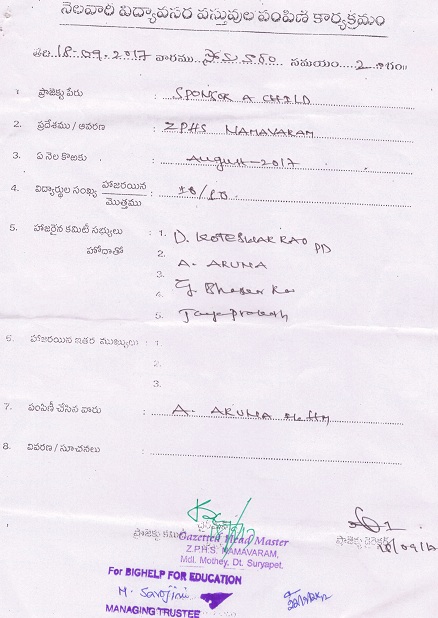 నెలవారి విద్యావసర వస్తువుల పంపిణి కార్యక్రమం
తేది 18-09-2017 వారము సోమవారం సమయం 2
1. ప్రాజెక్టు పేరు : SPONSOR A CHILD
2. ప్రదేశము / ఆవరణ : ZPHS NAMAVARAM
3. ఏ నెల కొఱకు : August-2017
4. విద్యార్థుల సంఖ్య హాజరయిన / మొత్తము : 10/10
5. హాజరైన కమిటీ సభ్యులు : 1. D. KOTESWAR RAO PD
హోదాతో 2.
A. ARUNA
3.
4. G. Bhaskar Rao
5. Jayaprakash
6. హాజరయిన ఇతర ముఖ్యులు : 1.
2.
3.
7. పంపిణీ చేసిన వారు : A. ARUNA
8. వివరణ / సూచనలు :
ప్రాజెక్టు కమిటీ ప్రాజెక్టు డైరెక్టర్
Gazetted Head Master
Z.P.H.S. NAMAVARAM,
Mdl. Mothey, Dt. Suryapet.
For BIGHELP FOR EDUCATION
M. Sarojini
MANAGING TRUSTEE